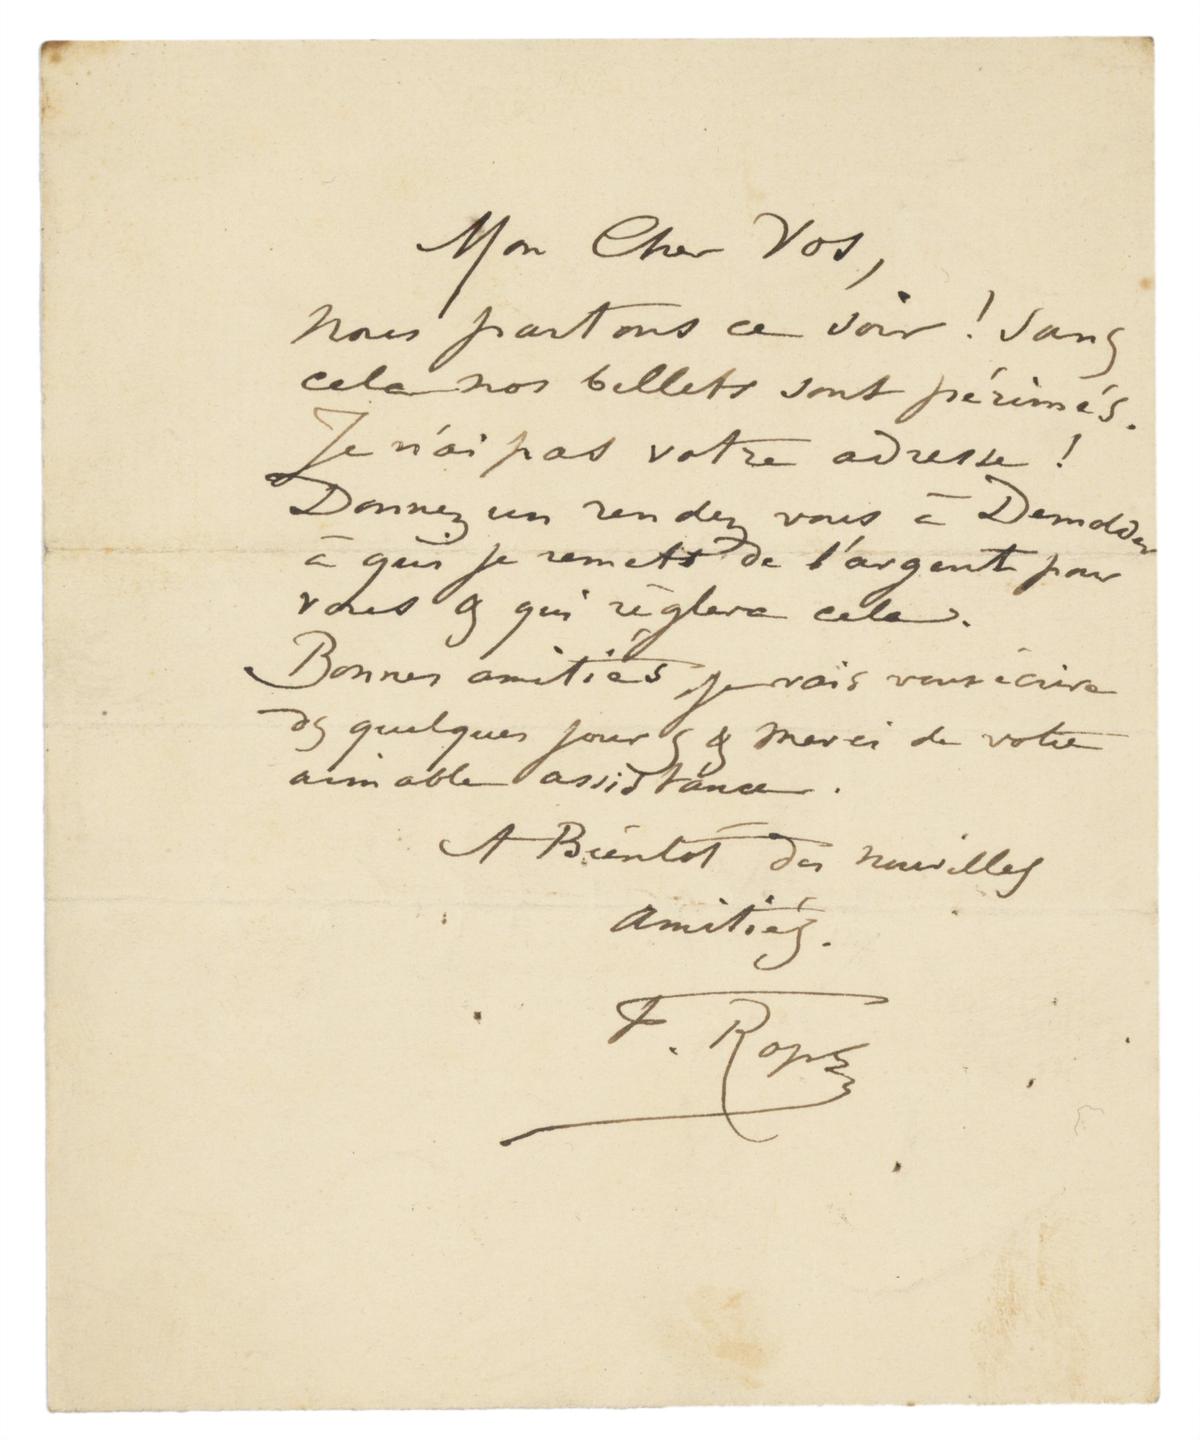 Mon Cher Vos,
nous partons ce soir ! Sans
cela nos billets sont périmés.
Je n'ai pas votre adresse !
Donnez un rendez vous à Demolder
à qui je remets de l'argent pour
vous & qui règlera cela.
Bonnes amitiés je vais vous écrire
ds quelques jours & merci de votre
aimable assistance.
A Bientôt des nouvelles
amitiés.
F. Rops